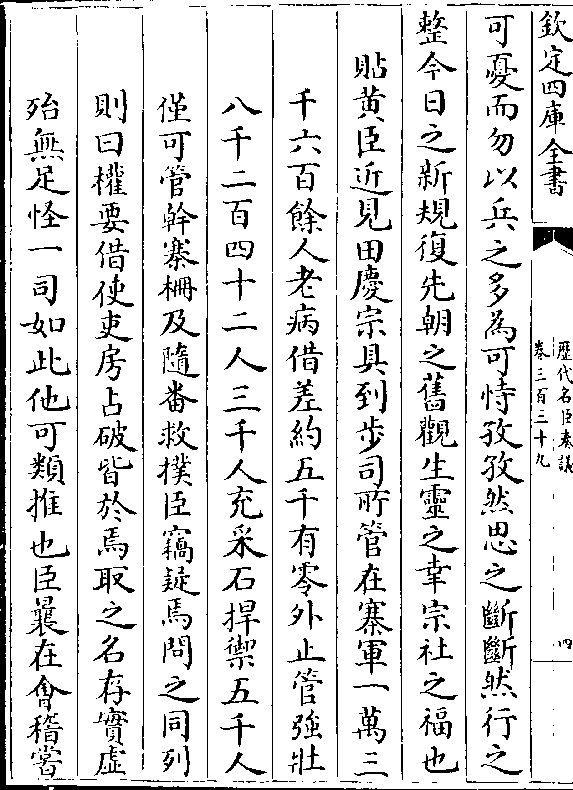 欽定四庫全書
歷代名臣奏議
卷三百三十九
四
可憂而勿以兵之多為可恃孜孜然思之斷斷然行之
整今日之新規復先朝之舊觀生靈之幸宗社之福也
貼黄臣近見田慶宗具到步司所管在寨軍一萬三
千六百餘人老病借差約五千有零外止管強壯
八千二百四十二人三千人充采石捍禦五千人
僅可管幹寨栅及隨番救撲臣竊疑焉問之同列
則曰權要借使吏房占破皆於焉取之名存實虛
殆無足怪一司如此他可類推也臣曩在會稽嘗